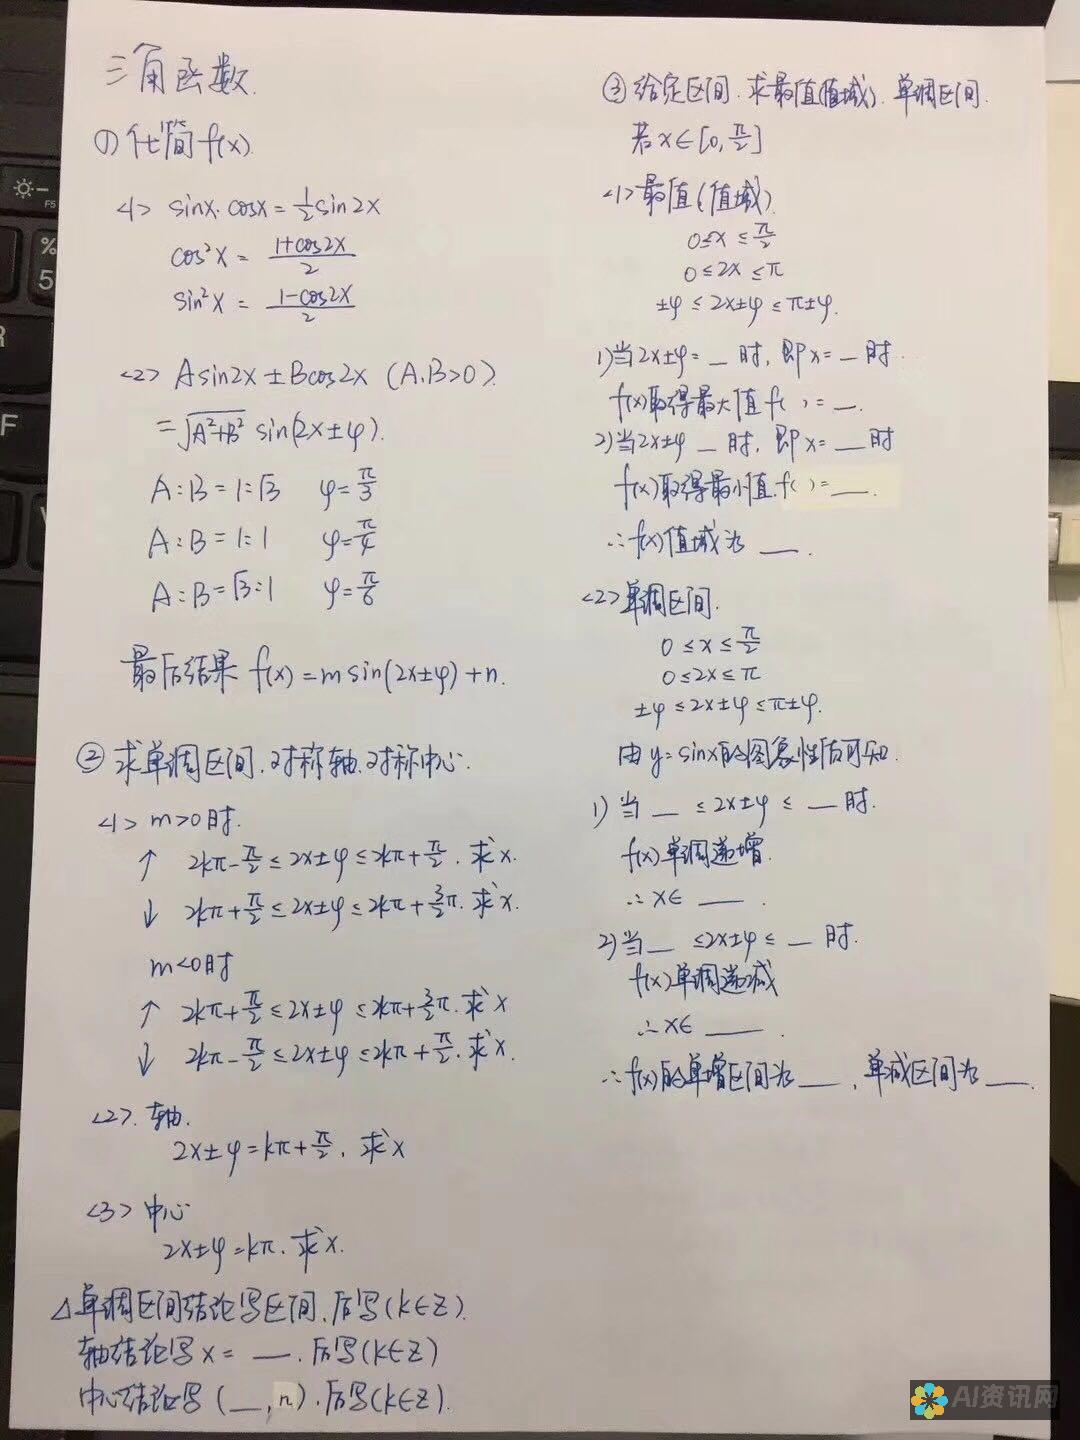 三角函数.
① 化简f(x)
<1> sinx·cosx=½sin2x
cos²x = (1+cos2x)/2
sin²x = (1-cos2x)/2
<2> Asin2x±Bcos2x (A,B>0).
=√(A²+B²) sin(2x±φ).
A:B=1:√3 φ=π/3
A:B=1:1 φ=π/4
A:B=√3:1 φ=π/6
最后结果 f(x)=m sin(2x±φ)+n.
② 求单调区间.对称轴.对称中心.
<1> m>0时.
↑ 2kπ-π/2≤2x±φ≤2kπ+π/2. 求x.
↓ 2kπ+π/2≤2x±φ≤2kπ+3/2π. 求x.
m<0时
↑ 2kπ+π/2≤2x±φ≤2kπ+3/2π. 求x
↓ 2kπ-π/2≤2x±φ≤2kπ+π/2. 求x.
<2>. 轴.
2x±φ=kπ+π/2. 求x
<3> 中心
2x±φ=kπ. 求x.
△单调区间结论写区间.后写(k∈Z).
轴结论写 x= __. 后写(k∈Z)
中心结论写(__,n).后写(k∈Z).
③给定区间.求最值(值域).单调区间.
若x∈[0,π/2]
<1>最值(值域)
0≤x≤π/2
0≤2x≤π
±φ≤2x±φ≤π±φ.
1)当2x±φ=__时,即x=__时
f(x)取得最大值f( )=__.
2)当2x±φ __时,即x=__时
f(x)取得最小值.f( )=__.
∴f(x)值域为 __.
<2>单调区间.
0≤x≤π/2
0≤2x≤π
±φ≤2x±φ≤π±φ.
由y=sinx的图象性质可知.
1)当__≤2x±φ≤__时.
f(x)单调递增.
∴x∈ __.
2)当__≤2x±φ≤__时.
f(x)单调递减
∴x∈ __.
∴f(x)的单增区间为__,单减区间为__.
AI资讯网
F5
%
5
R
F